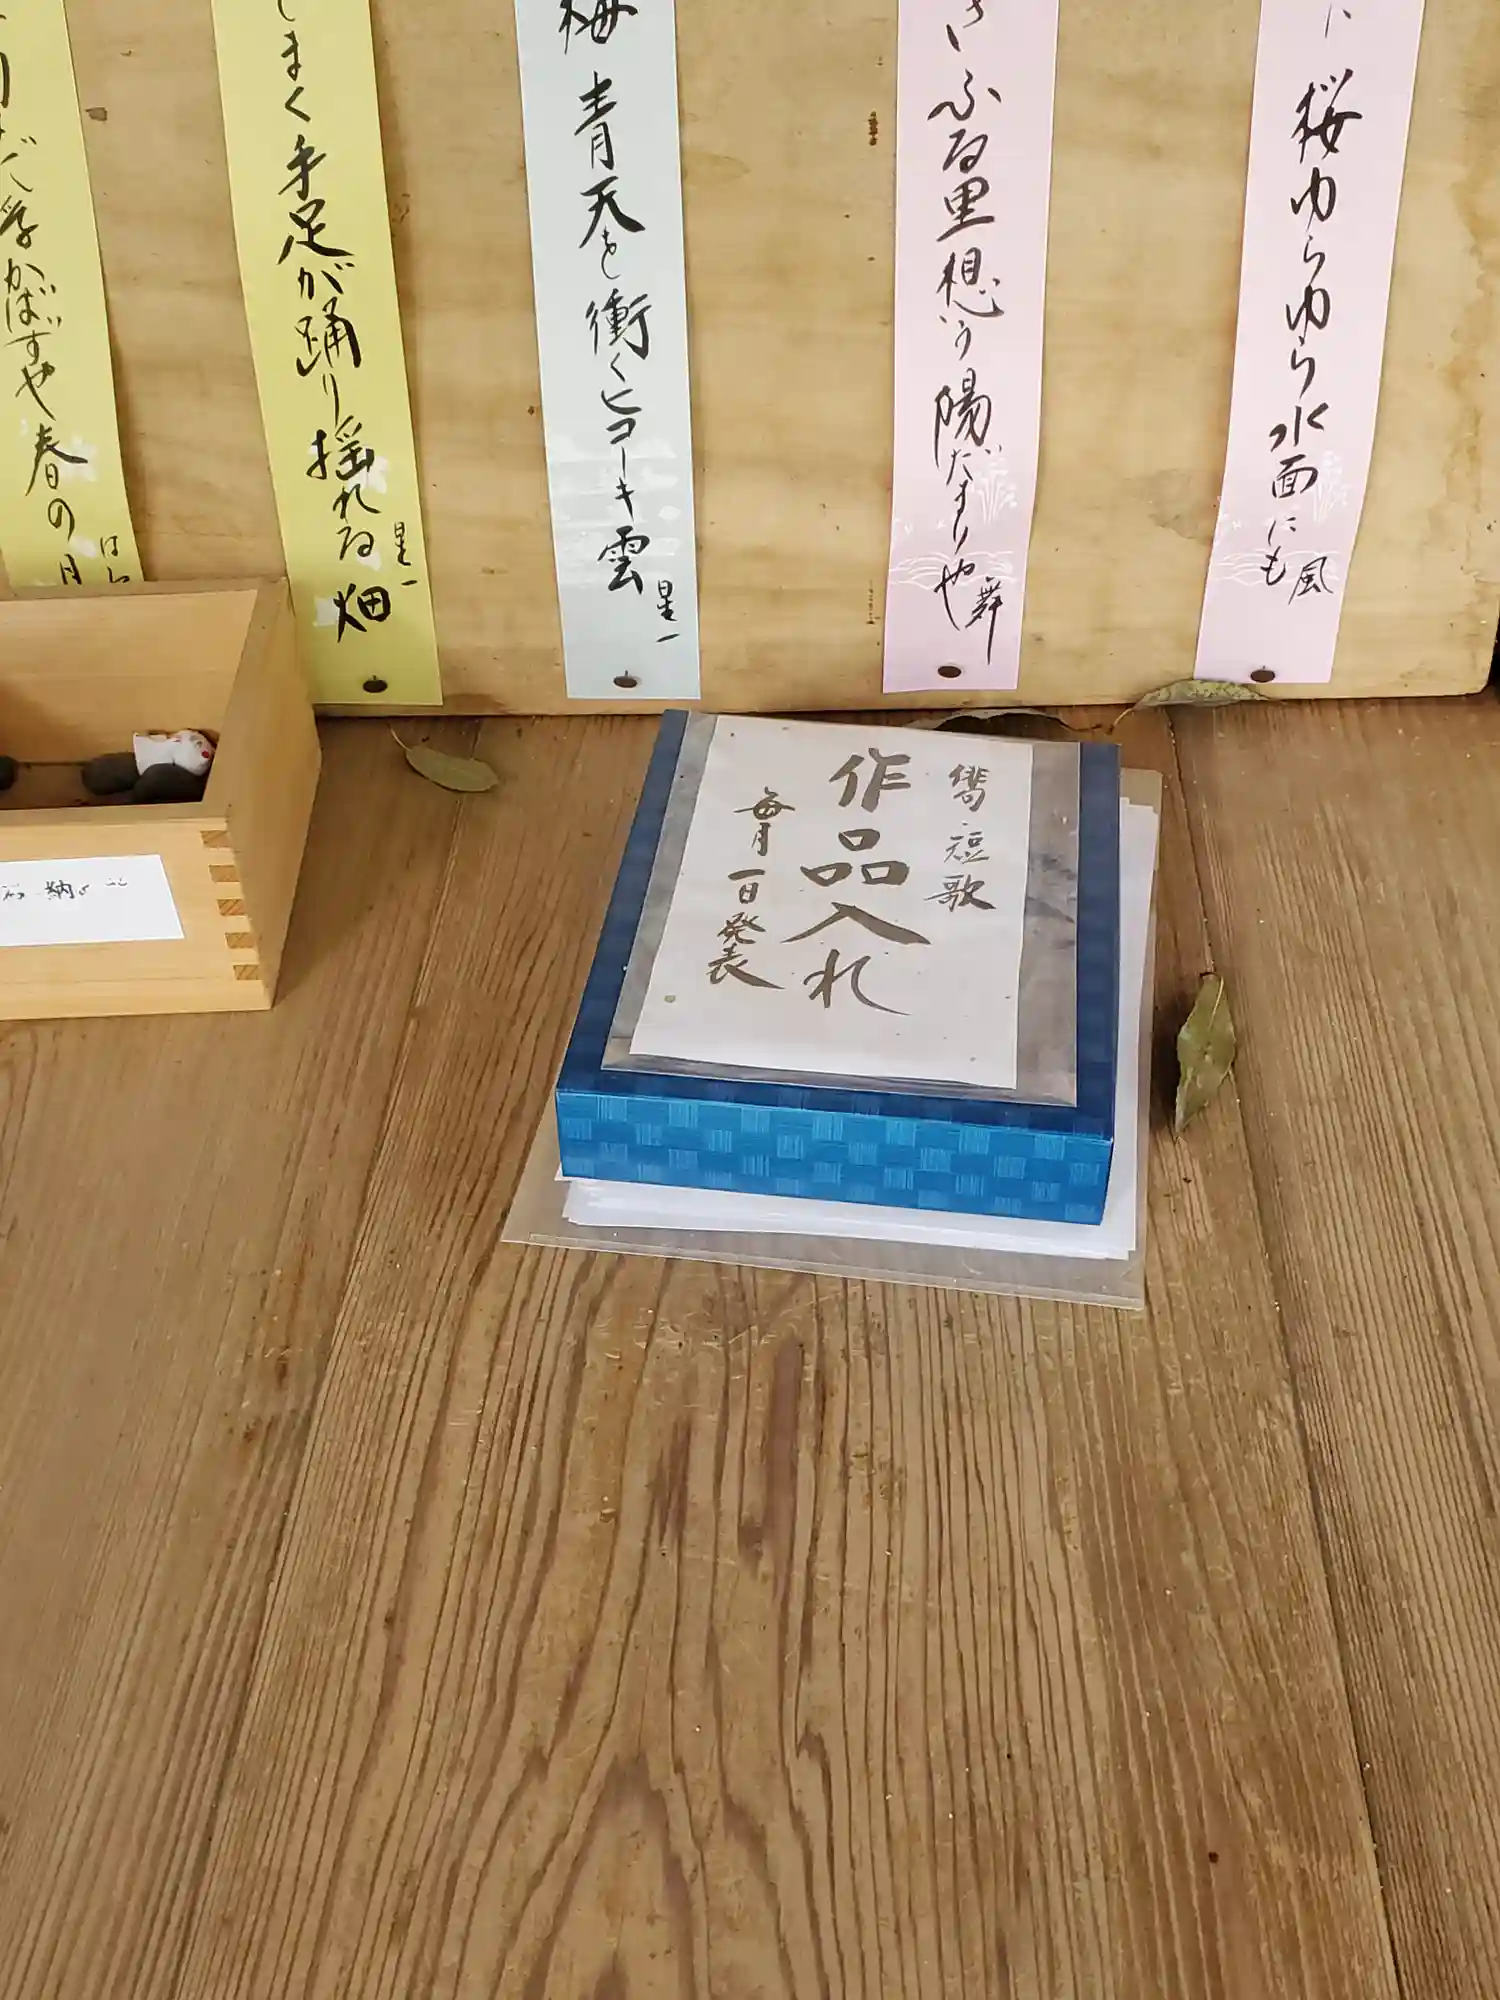 桜ゆらゆら水面にも
風
ふる里想う陽だまりや
舞
梅 青天を衝くヒコーキ雲
星一
しまく手足が踊り揺れる畑
星一
学かばずや春の月
俳句・短歌
作品入れ
毎月一日発表